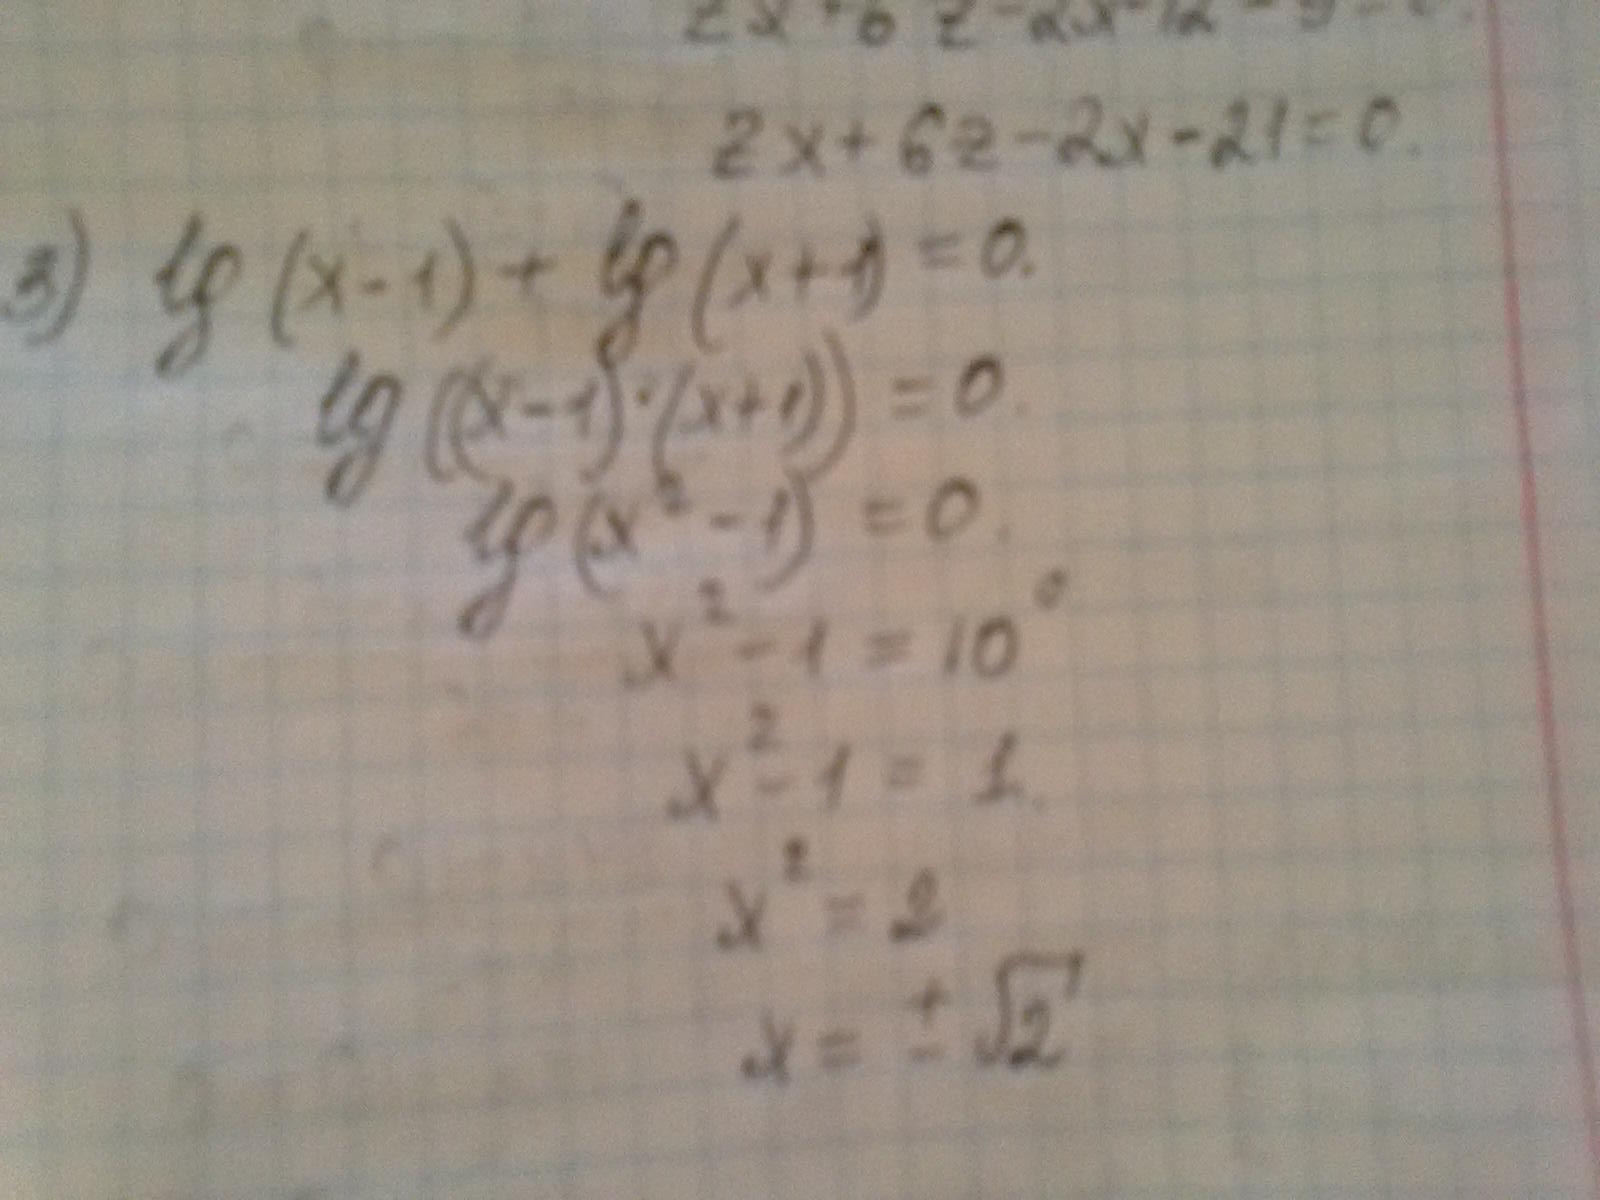 zx + 6z - 2x - 12 - 9 = 0.
zx + 6z - 2x - 21 = 0.
3) lg (x - 1) + lg (x + 1) = 0.
lg ((x - 1) · (x + 1)) = 0.
lg (x² - 1) = 0.
x² - 1 = 10⁰
x² - 1 = 1.
x² = 2
x = ± √2